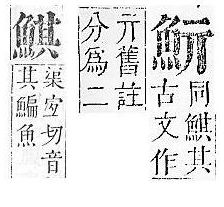 䰴
同鯕其
古文作
亓舊註
分為二
鯕
渠宜切音
其鯿魚